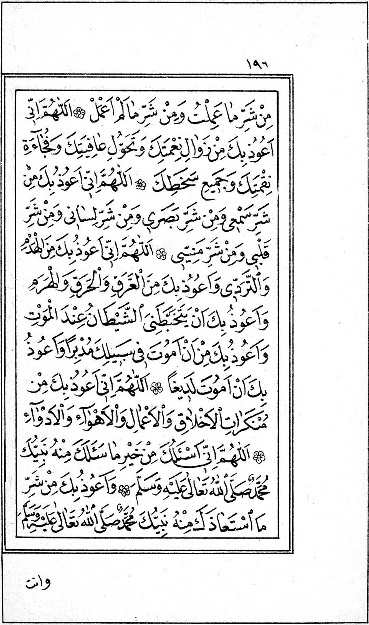 ١٩٦
مِنْ شَرِّ مَا عَمِلْتُ وَمِنْ شَرِّ مَا لَمْ اَعْمَلْ ۞ اَللّٰهُمَّ اِنّٖى
اَعُوذُ بِكَ مِنْ زَوَالِ نِعْمَتِكَ وَتَحَوُّلِ عَافِيَتِكَ وَفُجَاءَةِ
نِقْمَتِكَ وَجَمِيعِ سَخَطِكَ ۞ اَللّٰهُمَّ اِنّٖى اَعُوذُ بِكَ مِنْ
شَرِّ سَمْعٖى وَمِنْ شَرِّ بَصَرٖى وَمِنْ شَرِّ لِسَانٖى وَمِنْ شَرِّ
قَلْبٖى وَمِنْ شَرِّ مَنِيّٖى ۞ اَللّٰهُمَّ اِنّٖى اَعُوذُ بِكَ مِنَ الْهَدْمِ
وَالتَّرَدّٖى وَاَعُوذُ بِكَ مِنَ الْغَرَقِ وَالْحَرَقِ وَالْهَرَمِ
وَاَعُوذُ بِكَ اَنْ يَتَخَبَّطَنِىَ الشَّيْطَانُ عِنْدَ الْمَوْتِ
وَاَعُوذُ بِكَ مِنْ اَنْ اَمُوتَ فٖى سَبٖيلِكَ مُدْبِرًا وَاَعُوذُ
بِكَ اَنْ اَمُوتَ لَدٖيغًا ۞ اَللّٰهُمَّ اِنّٖى اَعُوذُ بِكَ مِنْ
مُنْكَرَاتِ الْاَخْلَاقِ وَالْاَعْمَالِ وَالْاَهْوَاءِ وَالْاَدْوَاءِ
۞ اَللّٰهُمَّ اِنّٖى اَسْئَلُكَ مِنْ خَيْرِ مَا سَئَلَكَ مِنْهُ نَبِيُّكَ
مُحَمَّدٌ صَلَّى اللّٰهُ تَعَالٰى عَلَيْهِ وَسَلَّمَ ۞ وَاَعُوذُ بِكَ مِنْ شَرِّ
مَا اسْتَعَاذَكَ مِنْهُ نَبِيُّكَ مُحَمَّدٌ صَلَّى اللّٰهُ تَعَالٰى عَلَيْهِ وَسَلَّمَ
وانت